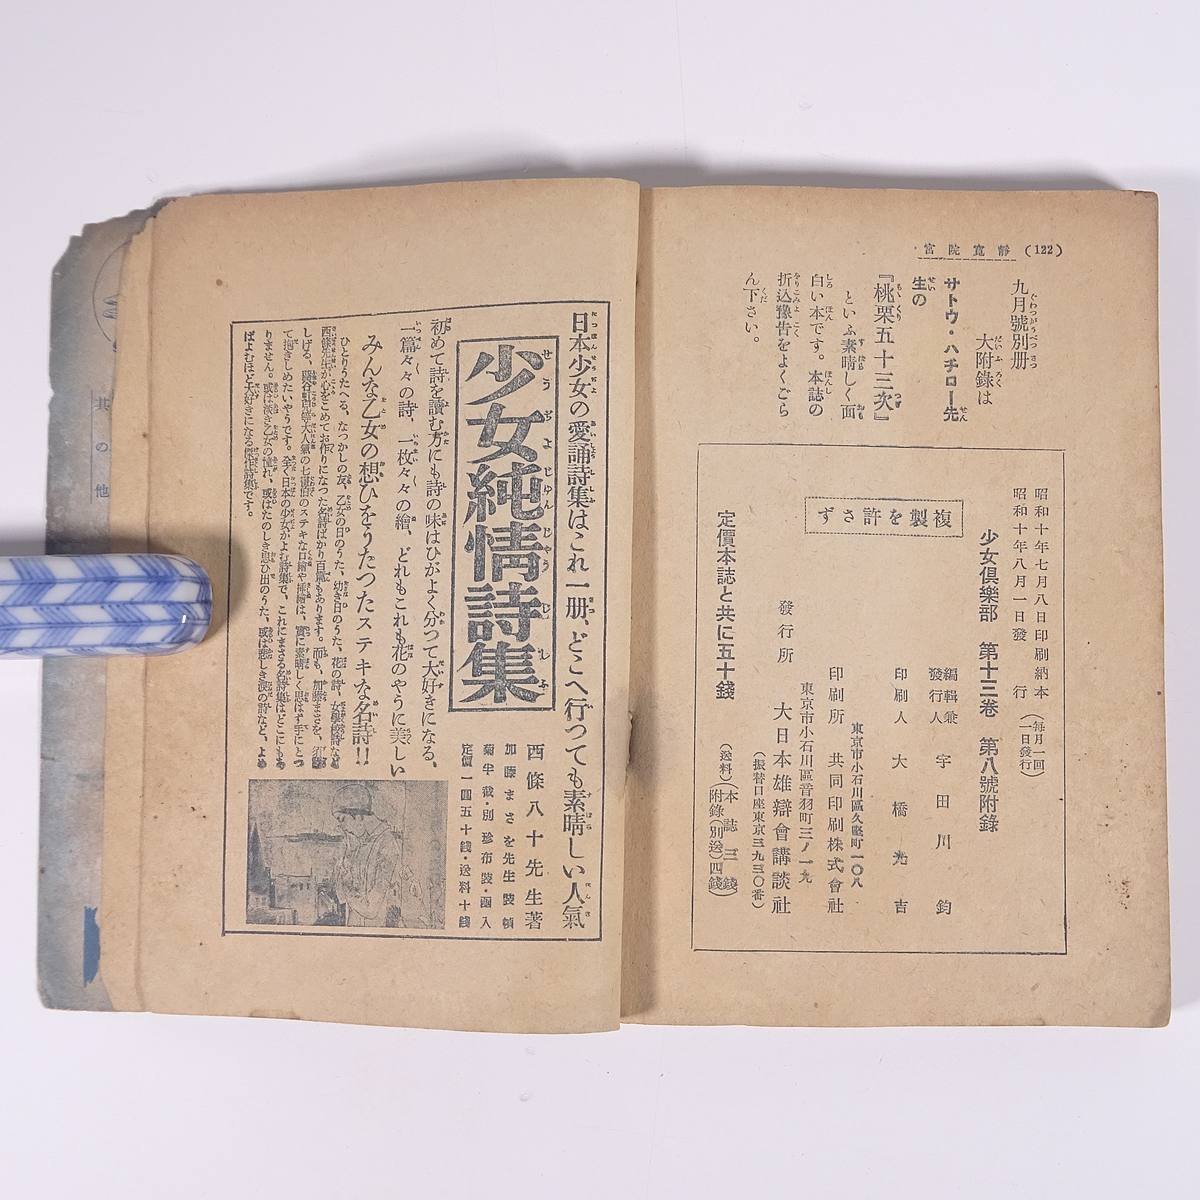 (122) 靜寬院宮
九月號別册
大附錄は
サトウ・ハチロー先
生の
『桃栗五十三次』
といふ素晴しく面
白い本です。本誌の
折込豫告をよくごら
ん下さい。
昭和十年七月八日印刷納本
昭和十年八月一日發行
(每月一回一日發行)
少女俱樂部 第十三卷 第八號附錄
編輯兼發行人 宇田川鈞
印刷人 大橋光吉
東京市小石川區久堅町一〇八
印刷所 共同印刷株式會社
東京市小石川區音羽町三ノ一九
發行所 大日本雄辯會講談社
(振替口座東京三九三〇番)
複製を許さず
定價本誌と共に五十錢
(送料)(本誌三錢 附錄(別送)四錢)
日本少女の愛誦詩集はこれ一册、どこへ行つても素晴しい人氣
少女純情詩集
せうぢよじゆんじやうししふ
西條八十先生著
加藤まさを先生裝幀
菊半截・別珍布裝・函入
定價一圓五十錢・送料十錢
初めて詩を讀む方にも詩の味はひがよく分つて大好きになる、
一篇々々の詩、一枚々々の繪、どれもこれも花のやうに美しい
みんな乙女の想ひをうたつたステキな名詩!!
ひとりうたへる、なつかしの友、乙女の日のうた、幼き日のうた、花の詩、女學校詩など
西條先生が心をこめてお作りになつた名詩ばかり百篇もあります。而も、加藤まさを、須藤
しげる、蕗谷虹兒等大人氣の七畫伯のステキな口繪や挿繪は、實に素晴しく思はず手にとつ
て抱きしめたいやうです。全く日本の少女がよむ詩集で、これにまさる名詩集はどこにもあ
りません。或は淡き乙女の憧れ、或はたのしき思ひ出のうた、或は悲しき涙の詩など、よめ
ばよむほど大好きになる傑作詩集です。
其の他